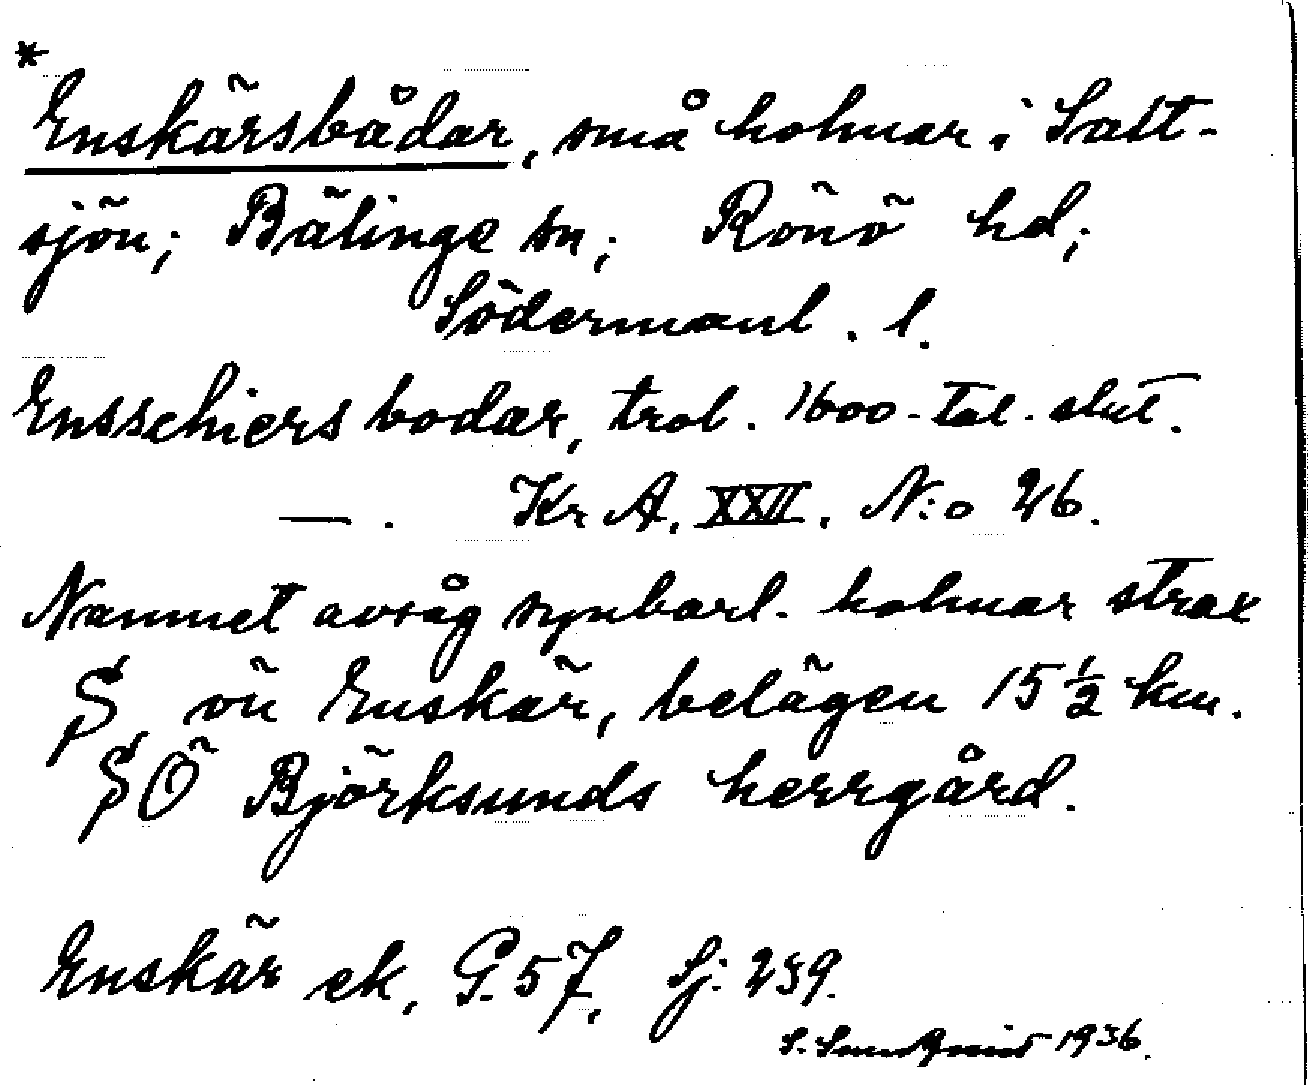 *
Enskärsbådar, små holmar i Salt-
sjön; Bälinge sn; Rönö hd;
Södermanl. l.
Ensschiers bodar, trol. 1600-tal. slut.
—. Kr A. XXII. N:o 26.
Namnet avsåg synbarl. holmar strax
S, vü Enskär, belägen 15 ½ km.
SÖ Björksunds herrgård.
Enskär ek. G. 57. Sj: 239.
S. 1936.